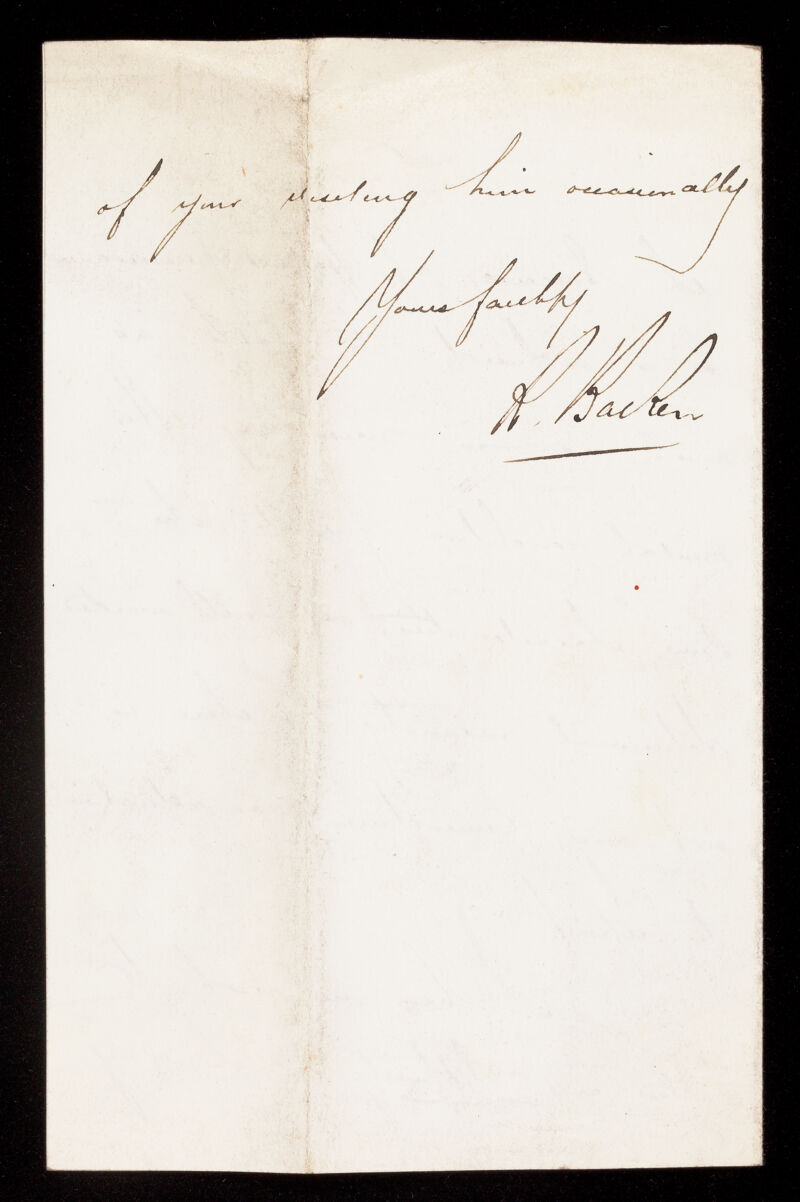 of your visiting him occasionally
Yours faithfy
R. Backen